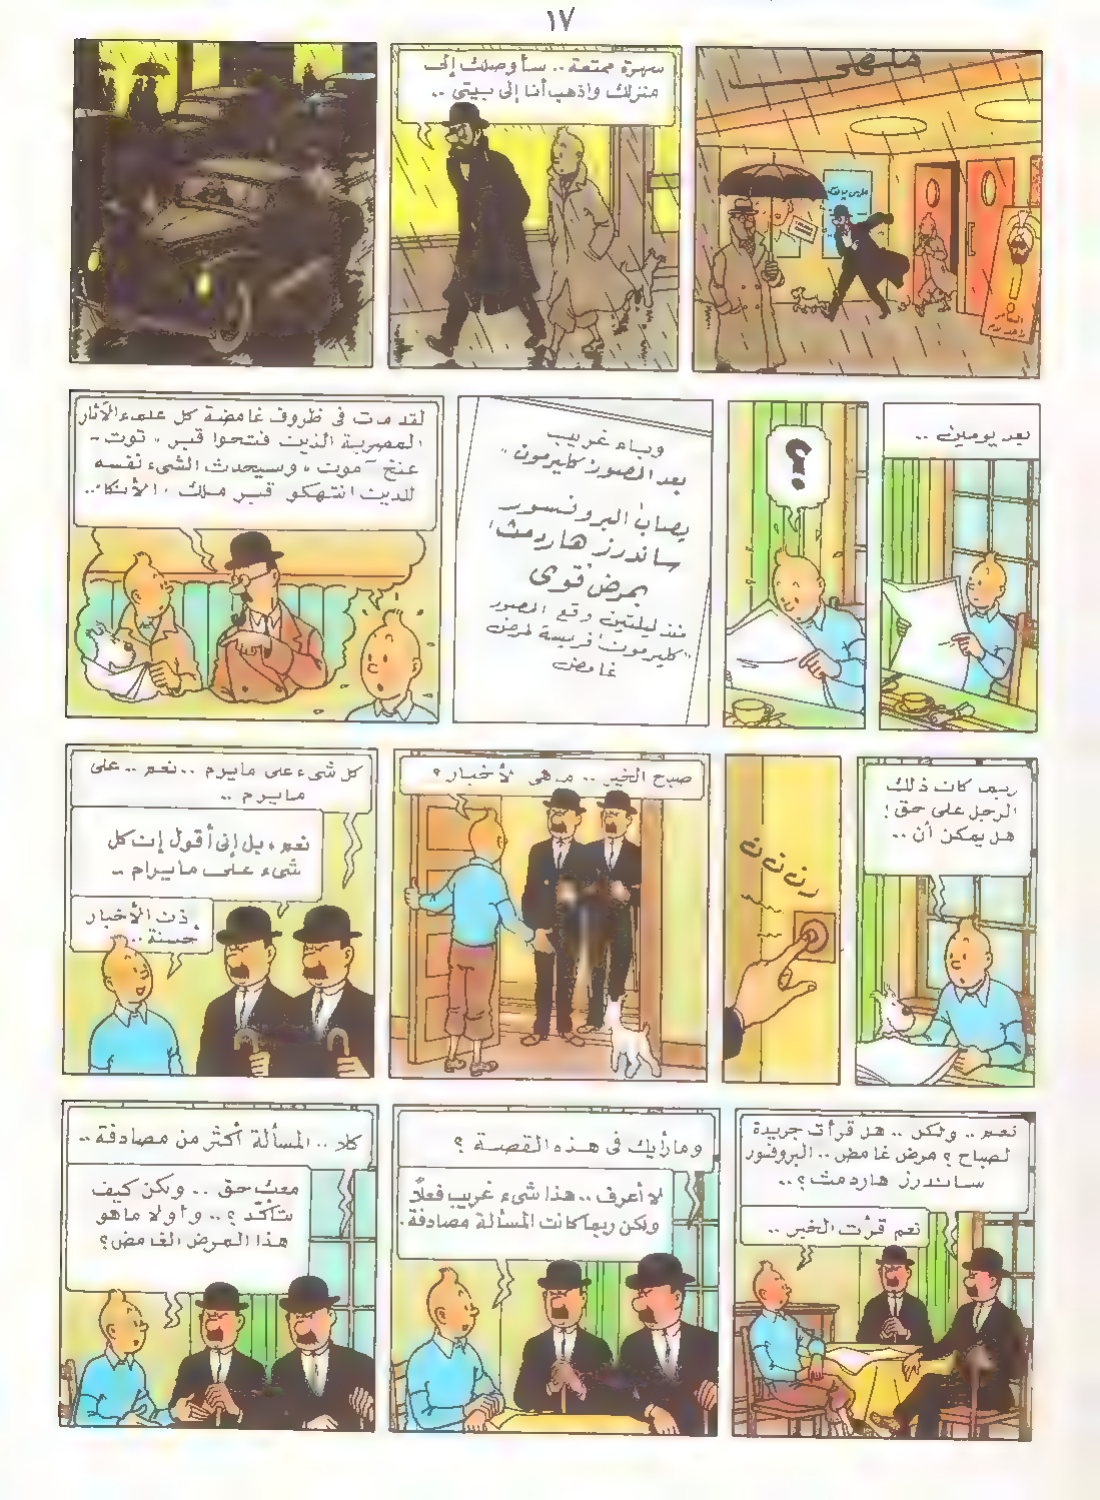 ١٧
ملهى
سهرة ممتعة .. سأوصلك إلى
منزلك واذهب أنا إلى بيتي ..
بعد يومين ..
؟
وباء غريب
بعد المصور كليرمون"
يصاب البرونسور
ساندرز هاردمث!
بمرض قوى
منذ ليلتين وقع المصور
"كليرمون" فريسة لمرض
غامض
لقد مات في ظروف غامضة كل علماء الآثار
المصرية الذين فتحوا قبر " توت -
عنخ - آموت " وسيحدث الشيء نفسه
للدين انتهكو قبر ملك " الأنكا" ..
ربما كان ذلك
الرجل على حق !
هل يمكن أن ..
رن ن ن
صباح الخير .. ما هى الأخبار ؟
كل شيء على مايرم .. نعم .. على
مايرم ..
نعم ، بل إنى أقول إن كل
شيء على مايرام ..
ذن الأخبار
حسنة ..
نعم .. ولكن .. هل قرأت جريدة
لصباح ؟ مرض غامض .. البروفسور
ساندرز هاردمث ؟ ..
نعم قرأت الخبر ..
ومارأيك فى هذه القصة ؟
لا أعرف .. هذا شيء غريب فعلاً
ولكن ربما كانت المسألة مصادفة .
كلا .. المسألة أكثر من مصادفة ..
معك حق .. ولكن كيف
نتأكد ؟ .. واولا ماهو
هذا المرض الغامض ؟